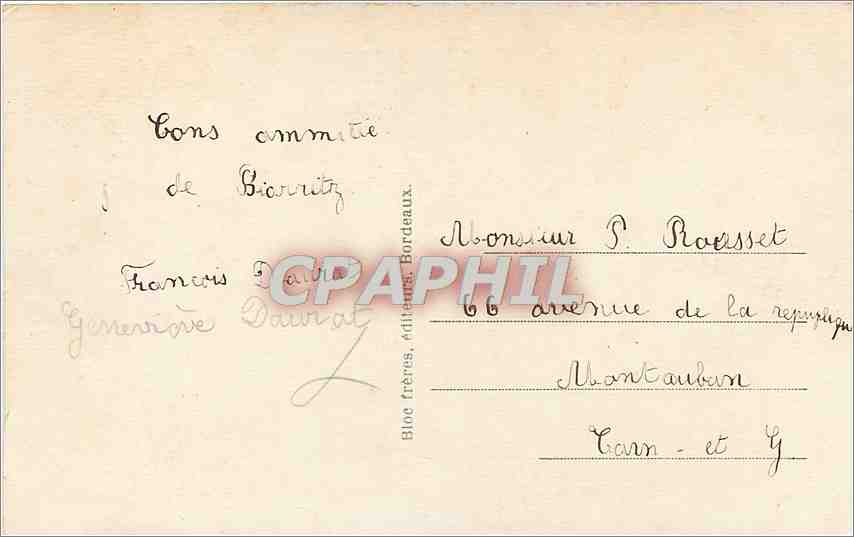 Bons ammitié
de Biarritz.
François Daurat
Geneviève Daurat
Bloc frères, éditeurs, Bordeaux.
CPAPHIL
Monsieur P. Rousset
66 avenue de la republique
Montauban
Tarn - et G